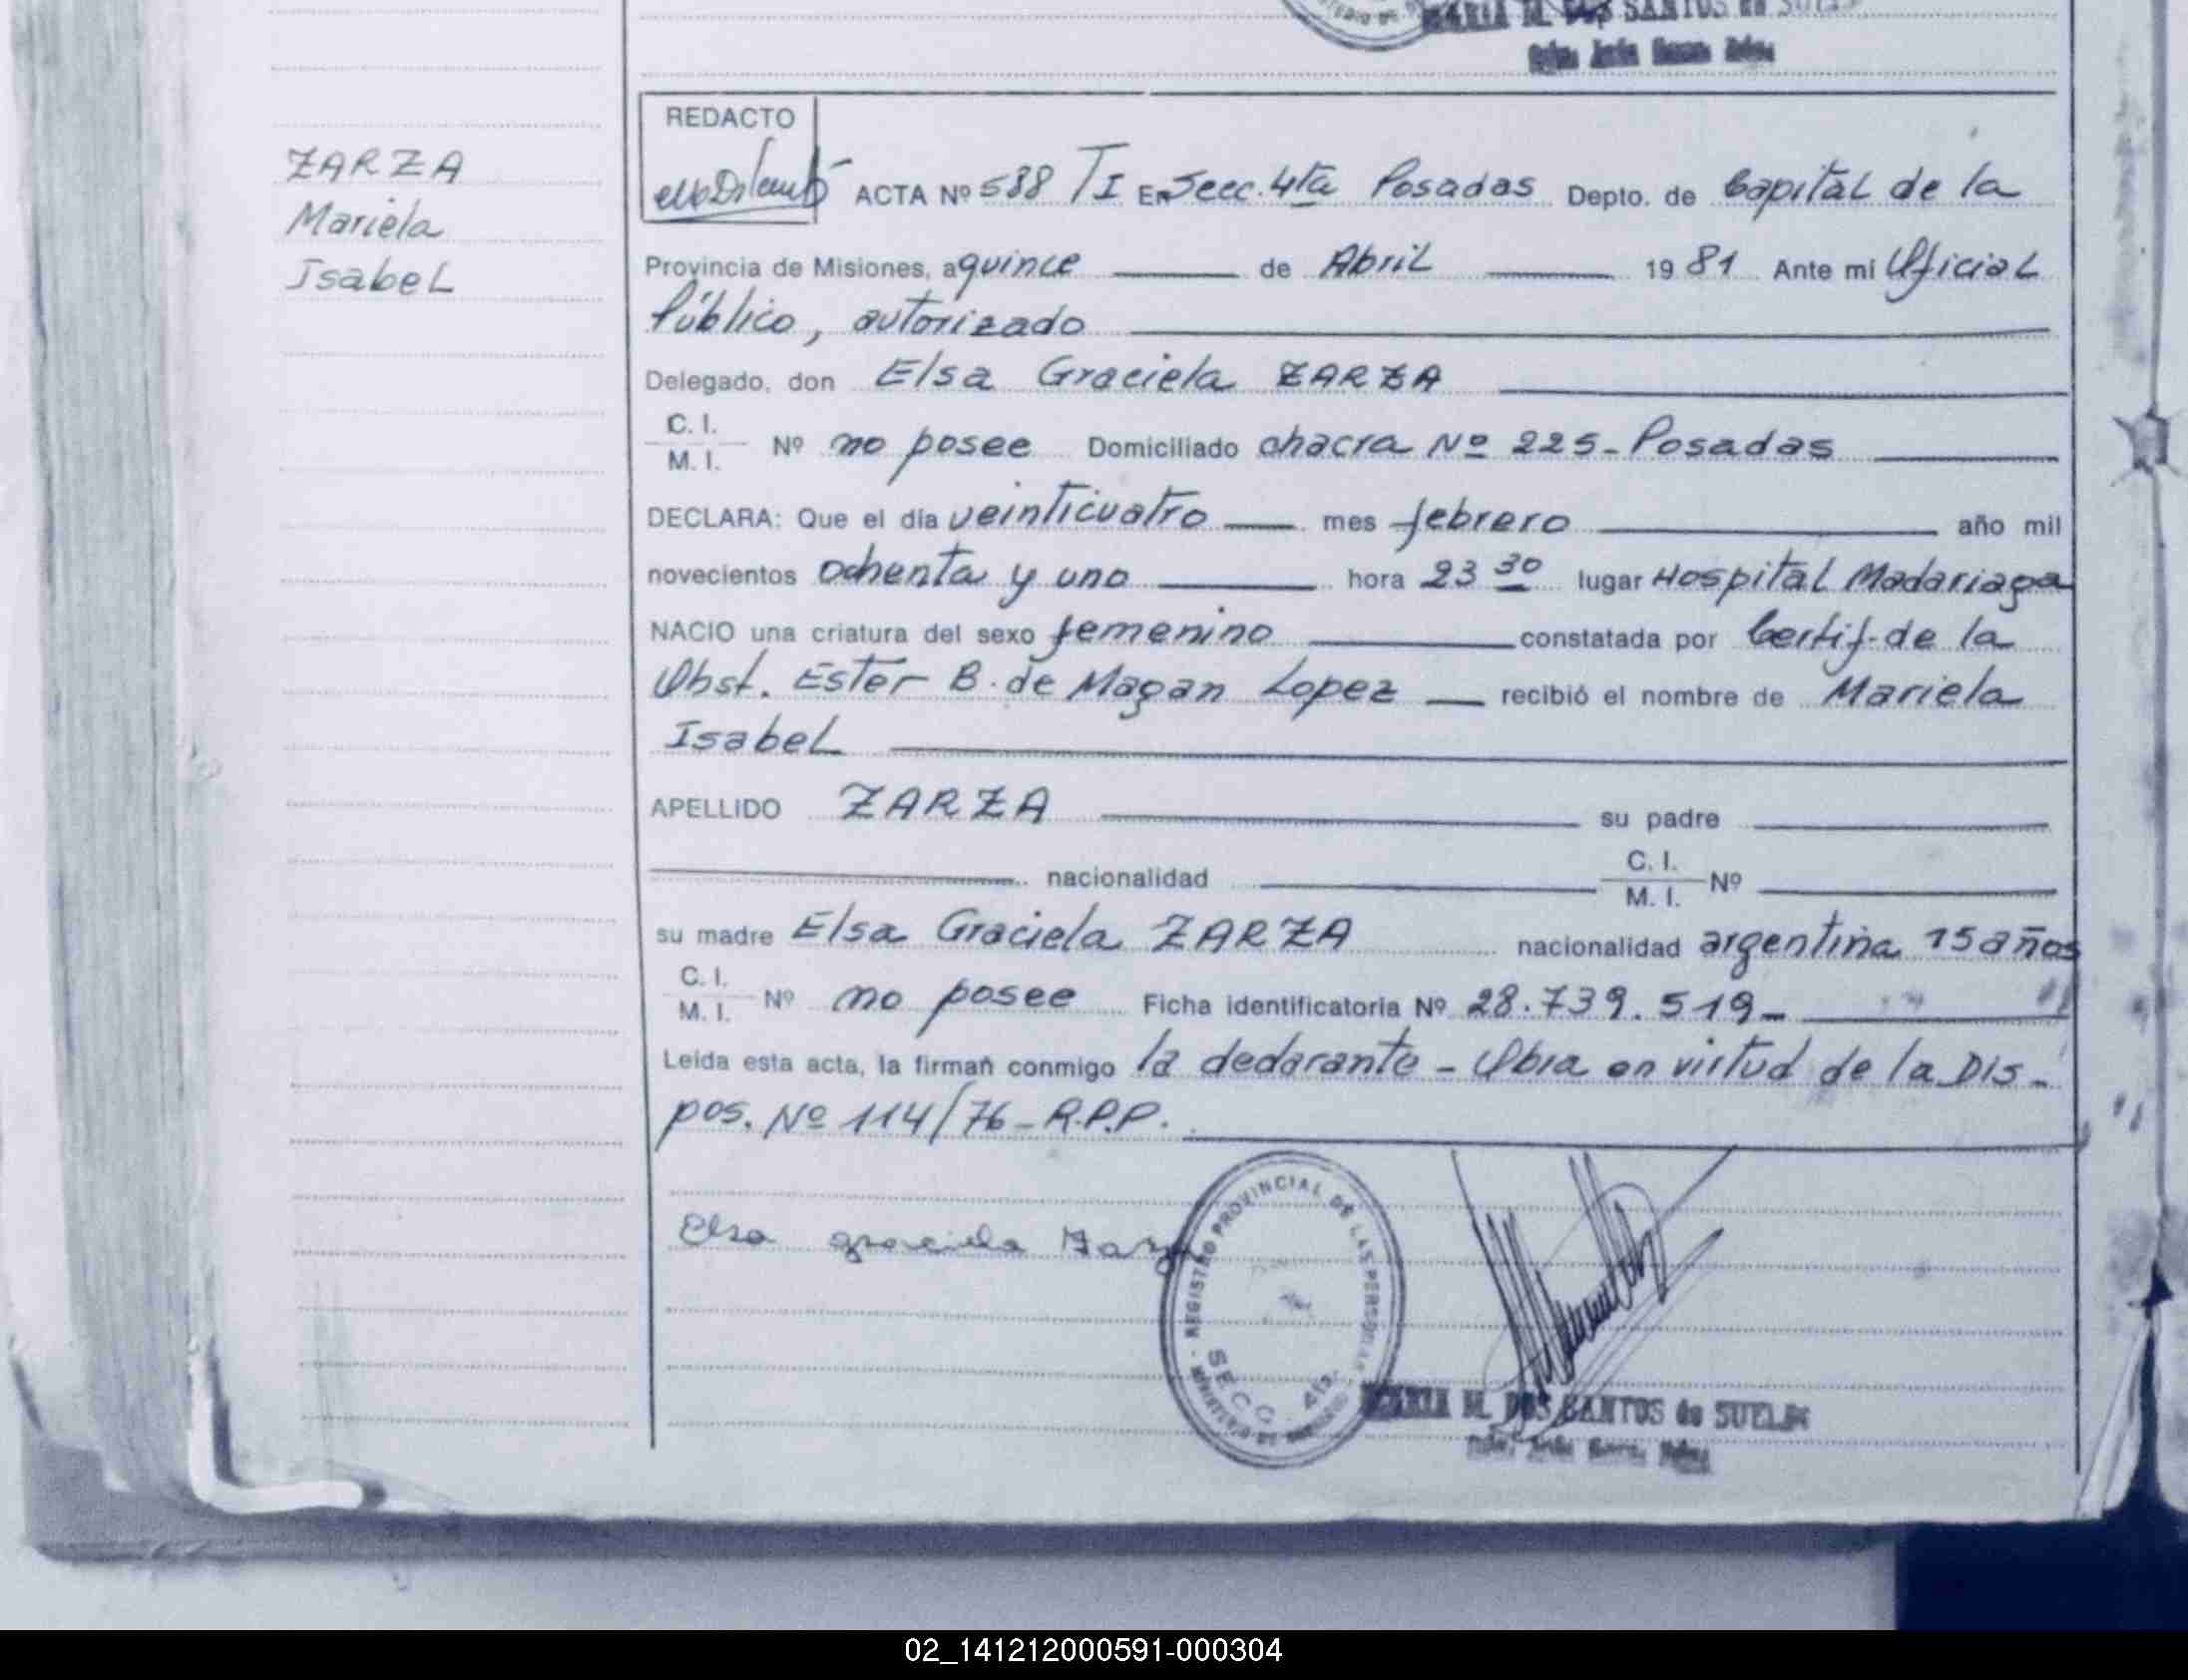 MARIA M. DOS SANTOS de SUELD
ZARZA
Mariela
Isabel
REDACTO
ACTA Nº 588 T I En Secc. 4ta Posadas Depto. de Capital de la
Provincia de Misiones, a quince de Abril 1981 Ante mi Oficial
Público, autorizado
Delegado, don Elsa Graciela ZARZA
C. I.
M. I. Nº no posee Domiciliado chacra Nº 225 - Posadas
DECLARA: Que el día veinticuatro mes febrero año mil
novecientos ochenta y uno hora 23 30 lugar Hospital Madariaga
NACIO una criatura del sexo femenino constatada por Certif. de la
Obst. Ester B. de Magan Lopez recibió el nombre de Mariela
Isabel
APELLIDO ZARZA su padre
nacionalidad C. I.
M. I. Nº
su madre Elsa Graciela ZARZA nacionalidad argentina 15 años
C. I.
M. I. Nº no posee Ficha identificatoria Nº 28.739.519-
Leida esta acta, la firman conmigo la declarante - Obra en virtud de la Dis-
pos. Nº 114/76 - R.P.P.
Elsa graciela Zarza
REGISTRO PROVINCIAL DE LAS PERSONAS
SECC. 4ta.
MINISTERIO DE GOBIERNO
MARIA M. DOS SANTOS de SUELD
02_141212000591-000304